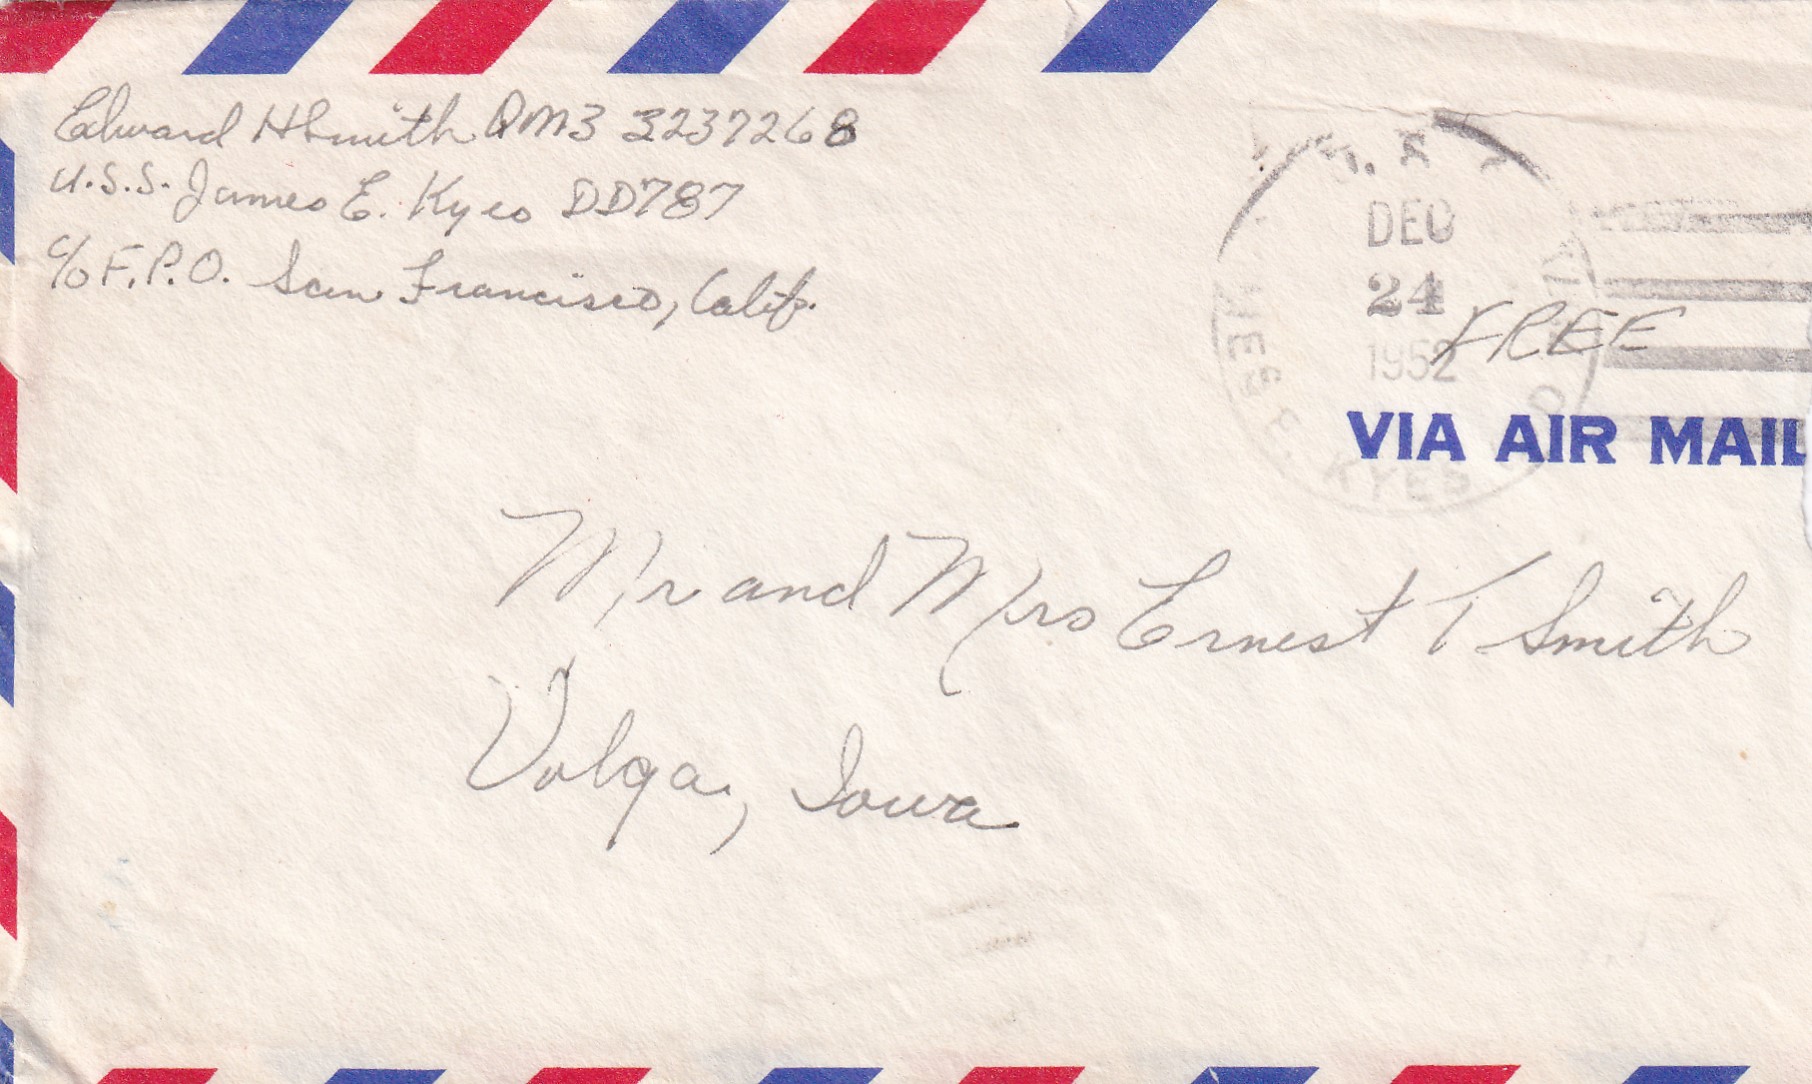 Edward H Smith QM3 3237268
U.S.S. James E. Kyes DD787
c/o F.P.O. San Francisco, Calif.
DEC
24
1952
FREE
E. KYES
VIA AIR MAIL
Mr and Mrs Ernest T Smith
Volga, Iowa